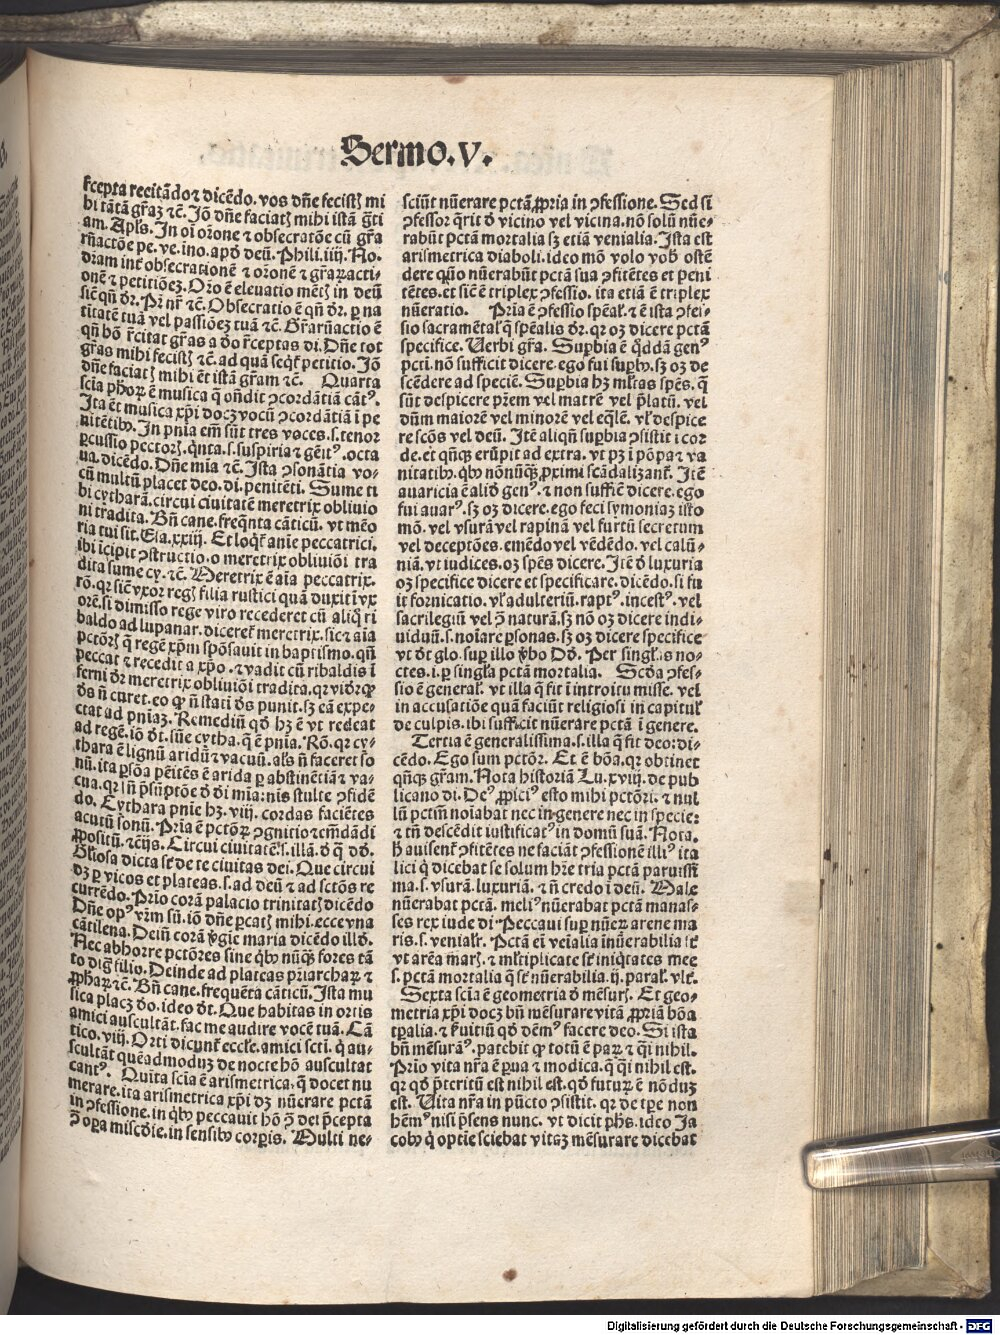 Sermo.v.
rcepta recitādo ⁊ dicēdo. vos dñe fecistꝭ mi
bi tātā grāꝫ ⁊c̄. Jō dñe faciatꝭ mihi istā gr̄ti
am. Apl's. In oī orōne ⁊ obsecratōe cū gr̄a
rūactōe pe. ve. ino. apd̕ deū. Phili. iiij. No.
dram int̕ obsecrationē ⁊ orōnē ⁊ gr̄aꝝacti-
onē ⁊ petitiōeꝫ. Orō ē eleuatio mētꝭ in deū
siē qn̄ dr̄. Pr̄ nr̄ ⁊c̄. Obsecratio ē qn̄ dr̄. ꝑ na
titatē tuā vel passiōeꝫ tuā ⁊c̄. Gr̄arūactio ē
qn̄ hō r̄citat gr̄as a do r̄ceptas di. Dn̄e tot
gr̄as mihi fecistꝭ ⁊c̄. ad quā seqt̕ petitio. Jō
dn̄e faciatꝭ mihi ēt istā gr̄am ⁊c̄. Quarta
scia ph̕oꝝ ē musica q̄ on̄dit ꝯcordātiā cāt⁹.
Ita ēt musica xp̄i docꝫ vocū ꝯcordātiā ī pe
nitētibꝰ. In pn̄ia em̄ sūt tres voces. s. tenor
ꝑcussio pectorꝭ. qn̄ta. s. suspiria ⁊ gēit⁹. octa
ua. dicēdo. Dn̄e mīa ⁊c̄. Ista ꝯsonātia vo-
cū multū placet deo. di. penitēti. Sume ti
bi cytharā. circui ciuitatē meretrix obliuio
ni tradita. Bn̄ cane. freq̄nta cāticū. vt mēo
ria tui sit. Esa. xxiij. Et loqt̕ anīe peccatrici.
ibi īcipit ꝯstructio. o meretrix obliuiōi tra
dita sume cy. ⁊c̄. Meretrix ē aīa peccatrix.
rō. qr sic̄ vxor regꝭ filia rustici quā duxit ī vx
orē. si dimisso rege viro recederet cū aliq̄ ri
baldo ad lupanar. diceret̕ meretrix. sic ⁊ aīa
pctōrꝭ q̄ regē xp̄m spōsauit in baptismo. qn̄
peccat ⁊ recedit a xp̄o. ⁊ vadit cū ribaldis ī
ferni dr̄ meretrix obliuiōi tradita. qr vidr̄ qꝙ
ds̄ n̄ curet. eo ꝙ n̄ stati ds̄ punit. sꝫ eā expe-
ctat ad pn̄iaꝫ. Remediū qd̕ hꝫ ē vt redeat
ad regē. iō dt̕. sūe cytha. q̄ ē pn̄ia. Rō. qr cy-
thara ē lignū aridū ⁊ vacuū. al's n̄ faceret so
nū. ita ꝑsōa pēitēs ē arida ꝑ abstinētiā ⁊ va-
cua. qr sn̄ p̄sūptōe d̕ di mīa: nis stulte ꝯfidē
do. Cythara pn̄ie hꝫ. viij. cordas faciētes
acutū sonū. Prīa ē pctōꝝ ꝯgnitio ⁊ em̄dādi
ꝓpositū. ⁊ c̄ijs. Circui ciuitatē. s. illā. d̕ q̄ dd̕.
Gl̕iosa dicta st̕ de te ciuitas dei. Que circui
dꝫ ꝑ vicos et plateas. s. ad deū ⁊ ad sctōs re
currēdo. Prīo corā palacio trinitatꝭ dicēdo
Dn̄e op⁹ vr̄m sū. iō dn̄e ꝑcatꝭ mihi. ecce vna
cātilena. Dein̄ corā v̕gīe maria dicēdo illd̕.
Nec abhorre pctōres sine qbꝰ nūqꝫ fores tā
to dig⁹ filio. Deinde ad plateas pr̄iarchaꝝ ⁊
ꝓph̕aꝝ ⁊c̄. Bn̄ cane. frequēta cāticū. Ista mu
sica placꝫ do. ideo dt̕. Que habitas in ortis
amici auscultāt. fac me audire vocē tuā. Cā
tico. viij. Orti dicunt̕ eccl̕e. amici sct̄i. q̕ au-
scultāt quēadmoduꝫ de nocte hō auscultat
cant⁹. Quīta scīa ē arismetrica. q̄ docet nu
merare. ita arismetrica xp̄i dꝫ nūerare pctā
in ꝯfessione. in qbꝰ peccauit hō ꝯ̄ dei p̄cepta
ꝯ̄ oꝑa misc̄die. in sensibꝰ corꝑis. Multi ne-
sciūt nūerare pctā ꝓpria in ꝯfessione. Sed si
ꝯfessor q̄rit d̕ vicino vel vicina. nō solū nūe-
rabūt pctā mortalia sꝫ etiā venialia. Ista est
arismetrica diaboli. ideo mō volo vob̕ ostē
dere quō nūerabūt pctā sua ꝯfitētes et peni
tētes. et sic̄ ē triplex ꝯfessio. ita etiā ē triplex
nūeratio. Prīa ē ꝯfessio sp̄eal̕. ⁊ ē ista ꝯfes-
sio sacramētal̕ q̄ sp̄ealis dr̄. qr oꝫ dicere pctā
specifice. Verbi gr̄a. Suꝑbia ē q̄ddā gen⁹
pcti. nō sufficit dicere. ego fui suꝑbꝰ. sꝫ oꝫ de
scēdere ad speciē. Suꝑbia hꝫ ml̕tas spēs. q̄
sūt despicere pr̄em vel matrē vel p̄latū. vel
dn̄m maiorē vel minorē vel eq̄lē. vl̕ despice
re sc̄os vel deū. Itē aliqn̄ suꝑbia ꝯsistit i cor
de. et qn̄qꝫ erūpit ad extra. vt pꝫ i pōpa ⁊ va
nitatibꝰ. qbꝰ nōnūqꝫ ꝓximi scādalizant̕. Itē
auaricia ē aliud gen⁹. ⁊ non suffic̄ dicere. ego
fui auar⁹. sꝫ oꝫ dicere. ego feci symoniaꝫ isto
mō. vel vsurā vel rapinā vel furtū secretum
vel deceptōes. emēdo vel vēdēdo. vel calū-
niā. vt iudices. oꝫ spēs dicere. Itē d̕ luxuria
oꝫ specifice dicere et specificare. dicēdo. si fu
it fornicatio. vl̕ adulteriū. rapt⁹. incest⁹. vel
sacrilegiū vel ꝯ̄ naturā. sꝫ nō oꝫ dicere indi-
uiduū. s. noīare ꝑsonas. sꝫ oꝫ dicere specifice
vt dt̕ glo. suꝑ illo v̕bo Dd̕. Per singl̕as no-
ctes. i. ꝑ singl̕a pctā mortalia. Scd̕a ꝯfes-
sio ē general̕. vt illa q̄ fit i introitu misse. vel
in accusatiōe quā faciūt religiosi in capitul̕
de culpis. ibi sufficit nūerare pctā i genere.
Tertia ē generalissima. s. illa q̄ fit deo: di-
cēdo. Ego sum pctōr. Et ē bōa. qr obtinet
qn̄qꝫ gr̄am. Nota historiā Lu. xviij. de pub
licano di. De⁹ ꝓpici⁹ esto mihi pctōri. ⁊ nul
lū pctm̄ noīabat nec in genere nec in specie:
⁊ tn̄ descēdit iustificat⁹ in domū suā. Nota.
h̕ auisent̕ ꝯfitētes ne faciāt ꝯfessionē illi⁹ ita
lici q̕ dicebat se solum hr̄e tria pctā paruissi
ma. s. vsurā. luxuriā. ⁊ n̄ credo i deū. Male
nūerabat pctā. meli⁹ nūerabat pctā manas-
ses rex iude di. Peccaui suꝑ nūeꝝ arene ma
ris. s. venialr̄. Pctā ei̅ veīalia inūerabilia st̕
vt arēa marꝭ. ⁊ ml̕tiplicate st̕ iniq̄tates mee
s. pctā mortalia q̄ st̕ nūerabilia. ij. paral̕. vlt̕.
Sexta scīa ē geometria d̕ mēsurꝭ. Et geo-
metria xp̄i docꝫ bn̄ mēsurare vitā ꝓpriā bōa
tꝑalia. ⁊ ẜuitiū qd̕ dēm⁹ facere deo. Si ista
bn̄ mēsurā⁹. patebit ꝙ totū ē paꝝ ⁊ q̄i nihil.
Prīo vita nr̄a ē ꝑua ⁊ modica. q̄ q̄i nihil est.
qr qd̕ p̄teritū est nihil est. qd̕ futuꝝ ē nōduꝫ
est. Vita nr̄a in pūcto ꝯsistit. qr de tꝑe non
hēm⁹ nisi p̄sens nunc. vt dicit ph̕s. ideo Ja
cobꝰ q̕ optie sciebat vitaꝫ mēsurare dicebat
Digitalisierung gefördert durch die Deutsche Forschungsgemeinschaft - DFG